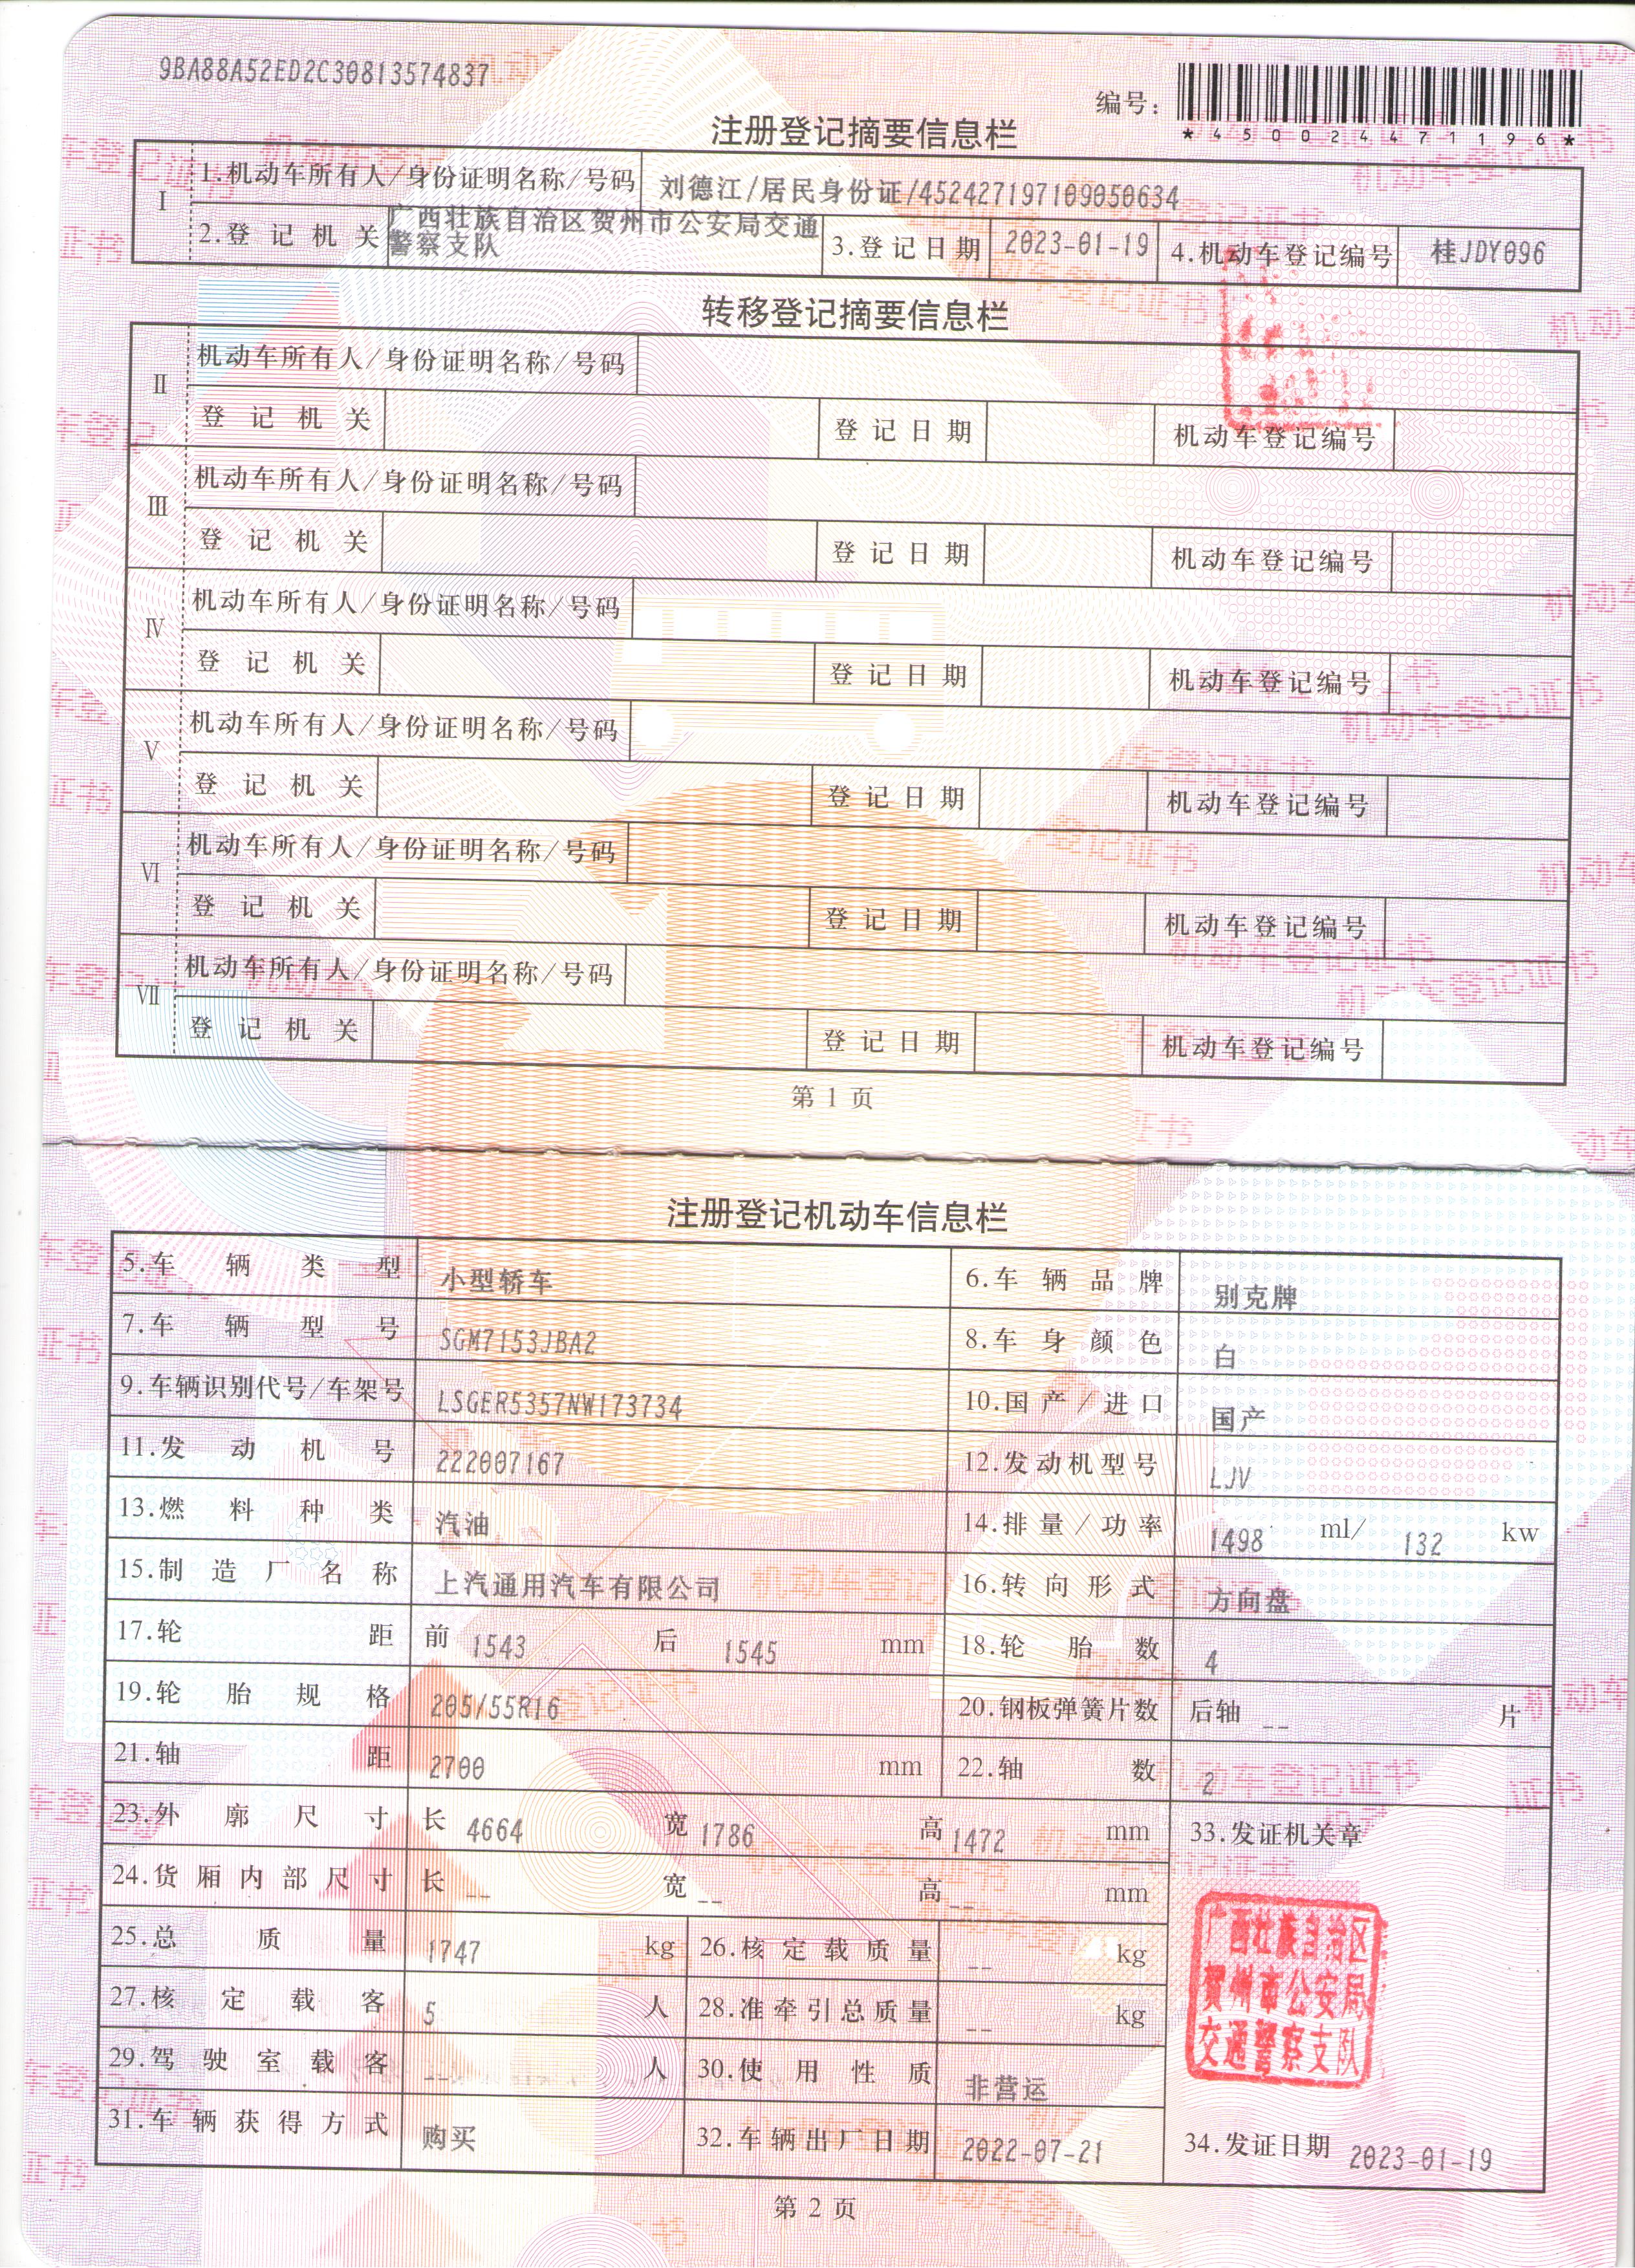 9BA88A52ED2C30813574837
编号：
*450024471196*
注册登记摘要信息栏
I 1.机动车所有人/身份证明名称/号码 刘德江/居民身份证/452427197109050634
2.登记机关 广西壮族自治区贺州市公安局交通警察支队 3.登记日期 2023-01-19 4.机动车登记编号 桂JDY096
转移登记摘要信息栏
II 机动车所有人/身份证明名称/号码
登记机关 登记日期 机动车登记编号
III 机动车所有人/身份证明名称/号码
登记机关 登记日期 机动车登记编号
IV 机动车所有人/身份证明名称/号码
登记机关 登记日期 机动车登记编号
V 机动车所有人/身份证明名称/号码
登记机关 登记日期 机动车登记编号
VI 机动车所有人/身份证明名称/号码
登记机关 登记日期 机动车登记编号
VII 机动车所有人/身份证明名称/号码
登记机关 登记日期 机动车登记编号
第 1 页
注册登记机动车信息栏
5.车辆类型 小型轿车 6.车辆品牌 别克牌
7.车辆型号 SGM7153JBA2 8.车身颜色 白
9.车辆识别代号/车架号 LSGER5357NW173734 10.国产/进口 国产
11.发动机号 222007167 12.发动机型号 LJV
13.燃料种类 汽油 14.排量/功率 1498 ml/ 132 kw
15.制造厂名称 上汽通用汽车有限公司 16.转向形式 方向盘
17.轮距 前 1543 后 1545 mm 18.轮胎数 4
19.轮胎规格 205/55R16 20.钢板弹簧片数 后轴 -- 片
21.轴距 2700 mm 22.轴数 2
23.外廓尺寸 长 4664 宽 1786 高 1472 mm 33.发证机关章
24.货厢内部尺寸 长 -- 宽 -- 高 -- mm
25.总质量 1747 kg 26.核定载质量 -- kg
27.核定载客 5 人 28.准牵引总质量 -- kg
29.驾驶室载客 -- 人 30.使用性质 非营运
广西壮族自治区
贺州市公安局
交通警察支队
31.车辆获得方式 购买 32.车辆出厂日期 2022-07-21 34.发证日期 2023-01-19
第 2 页